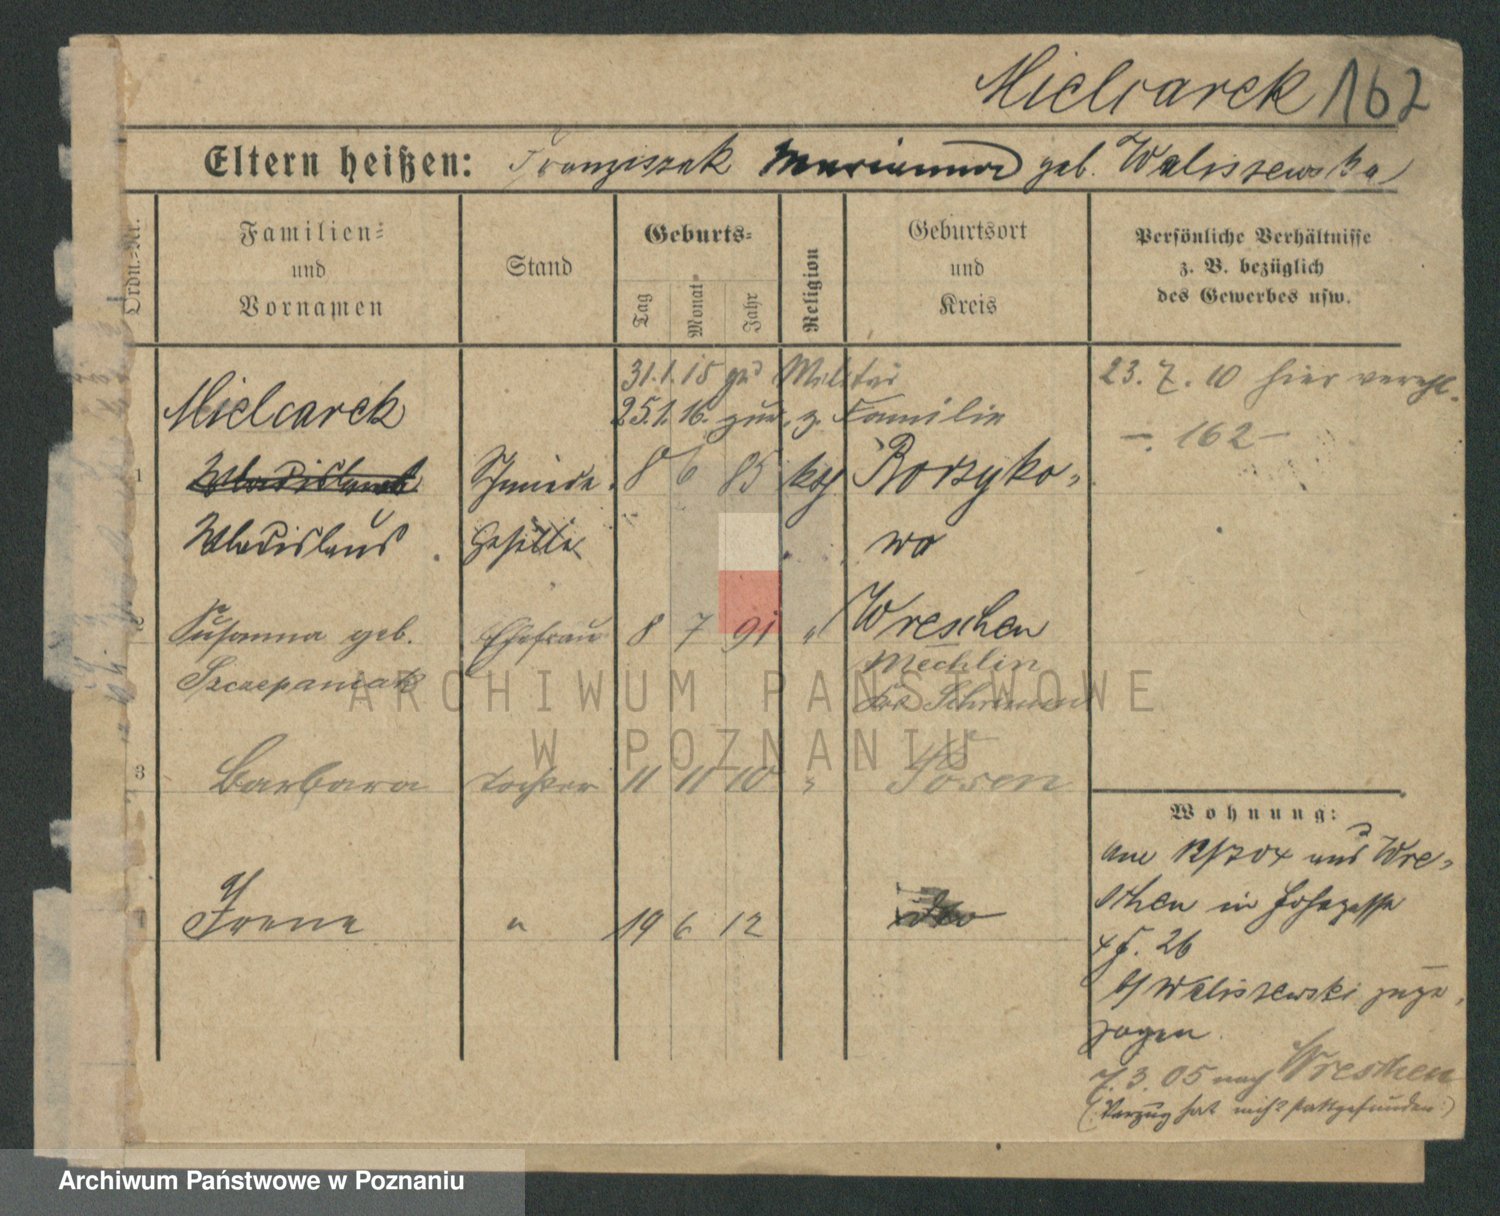 Mielcarek 162
Eltern heißen: Franziszek Marianna geb. Waliszewska
Ordn.-Nr.
Familien= und Vornamen
Stand
Geburts=
Tag
Monat
Jahr
Religion
Geburtsort und Kreis
Persönliche Verhältnisse z. B. bezüglich des Gewerbes usw.
31.1.15 zum Militär
25.1.16. zur. z. Familie
23.7.10 hier verehl.
– 162 –
Mielcarek
1 Wladislaus Schmiede 8 6 85 kath Borzyko=
Wladislaus Geselle wo
2 Susanna geb. Ehefrau 8 7 91 " Wreschen
Szczepaniak Mechlin
Krs Schrimm
3 Barbara Tochter 11 11 10 " Posen
4 Irene " 19 6 12
Wohnung:
Am 12/7 04 aus Wre=
schen in
4 26
b/ Waliszewski zuge=
zogen.
7.3.05 nach Wreschen
(Verzug hat nicht stattgefunden.)
ARCHIWUM PAŃSTWOWE
W POZNANIU
Archiwum Państwowe w Poznaniu